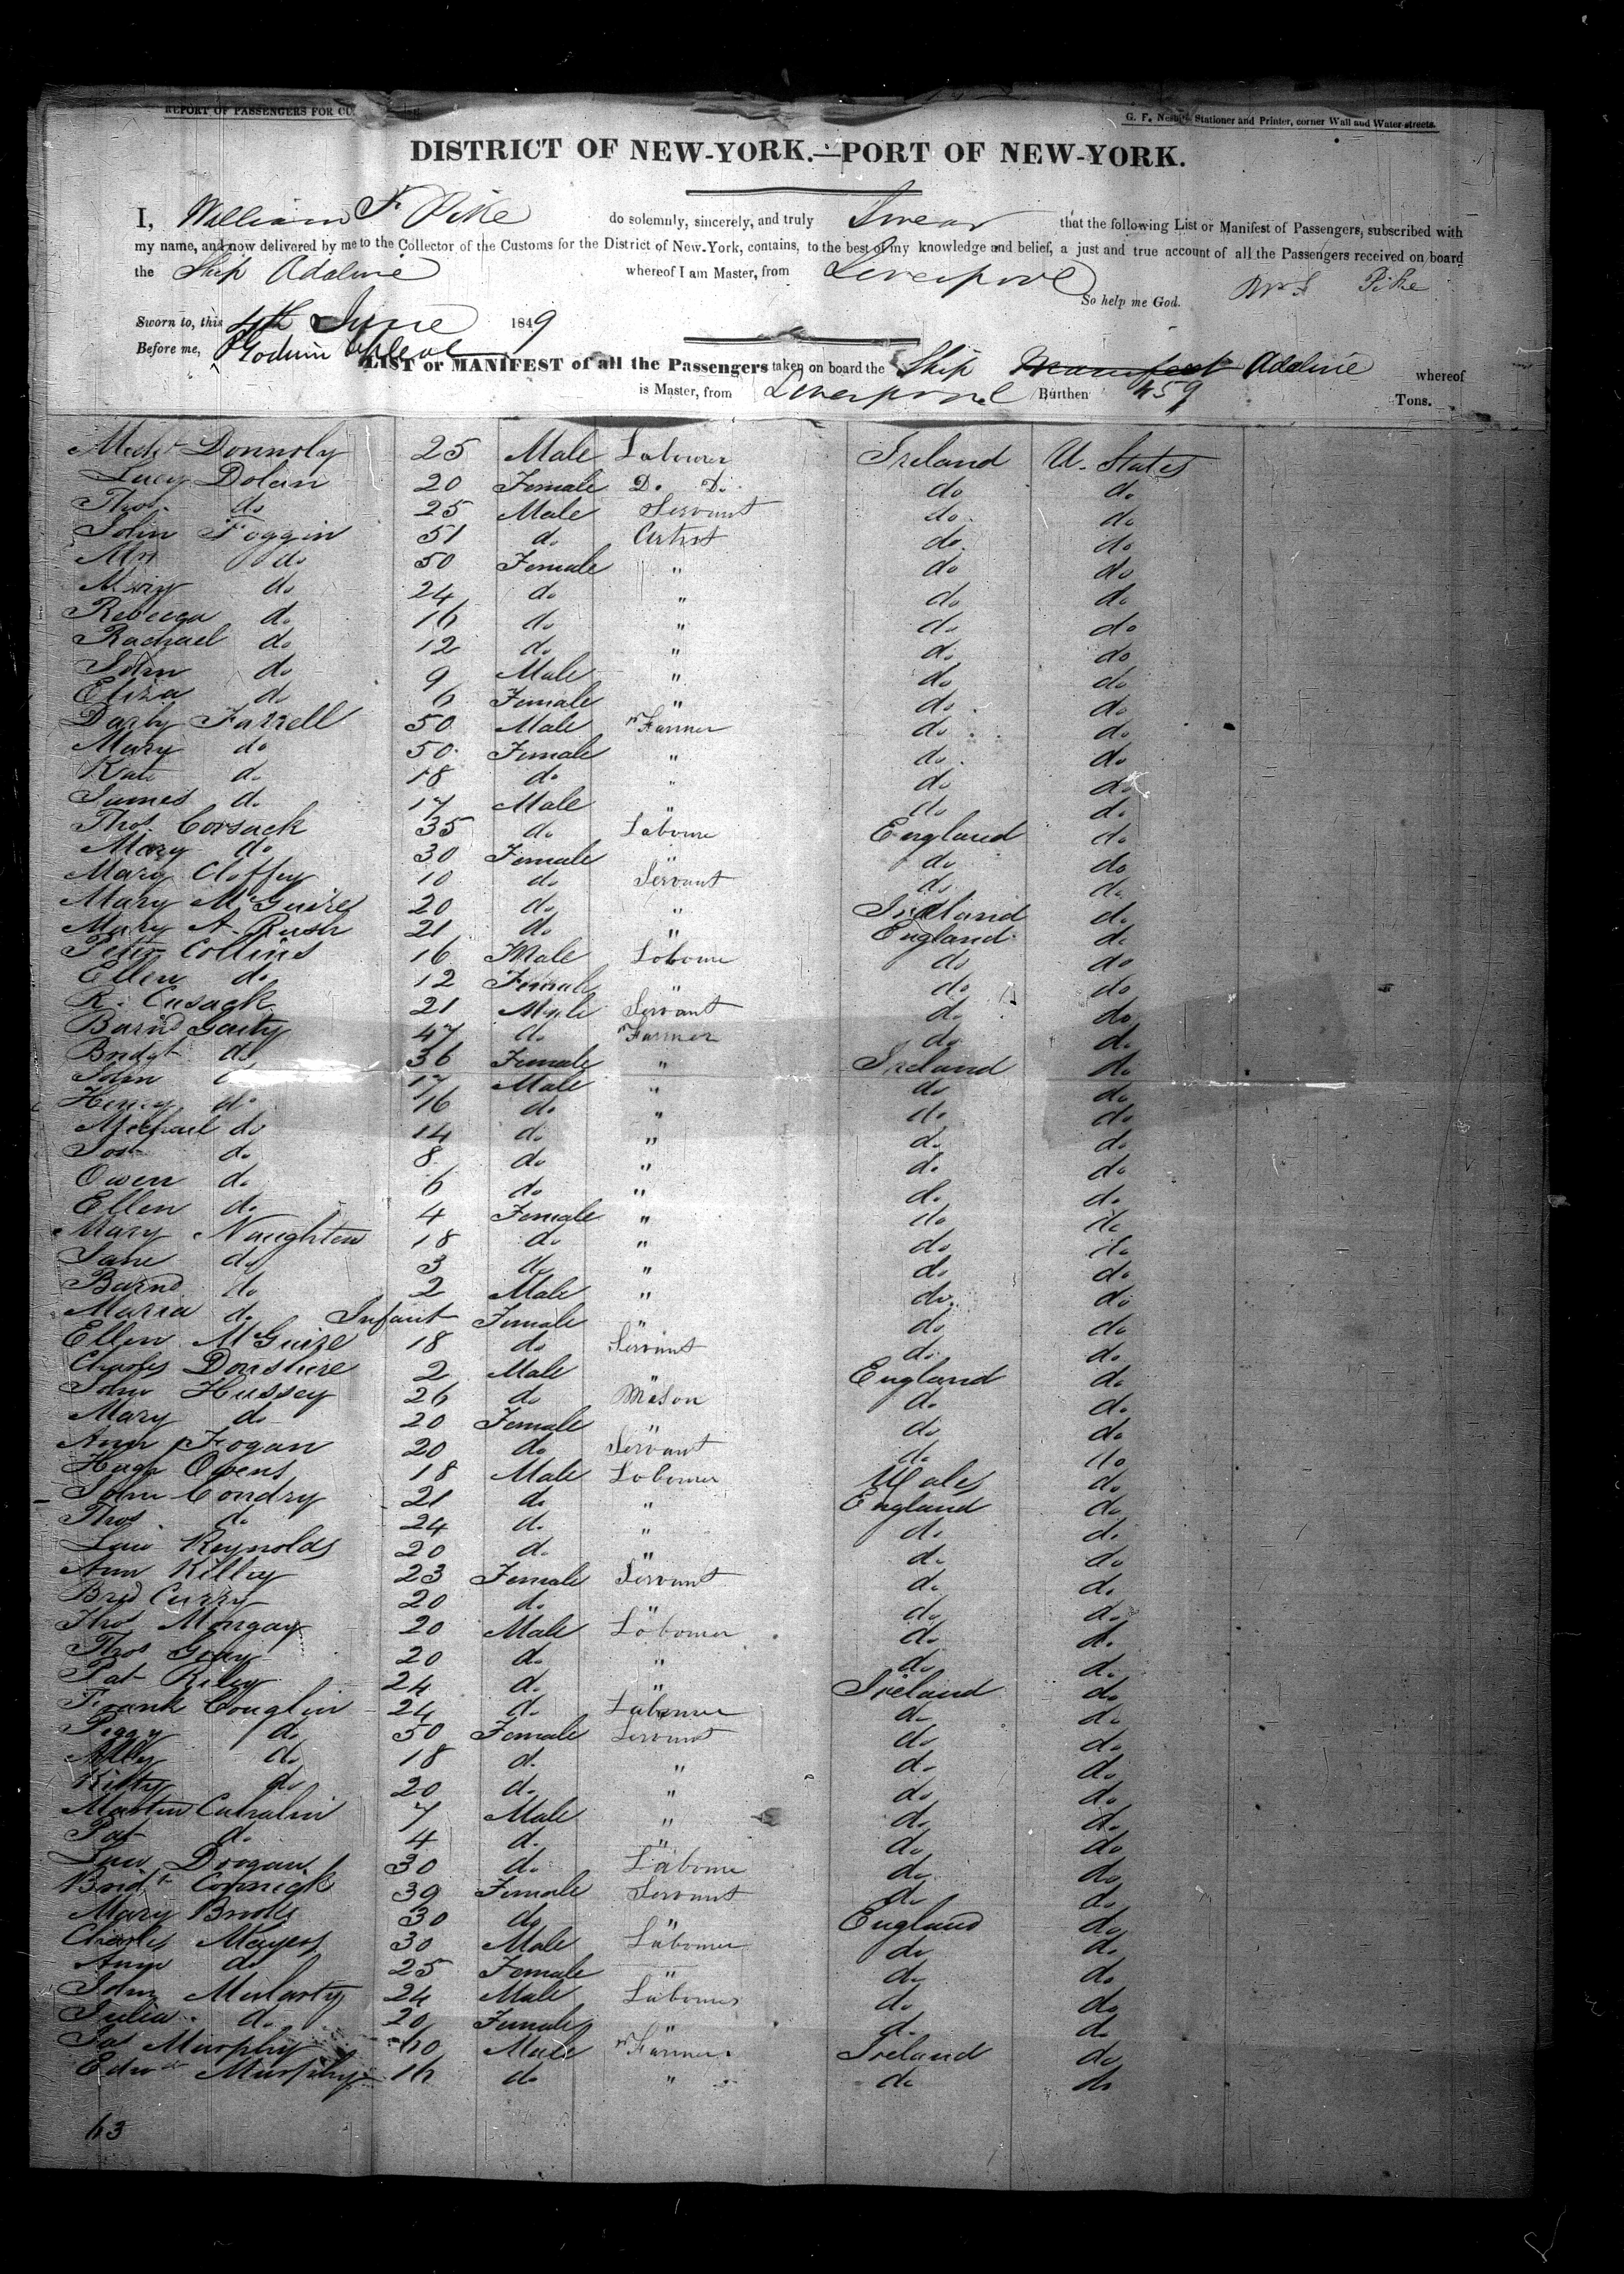 REPORT OF PASSENGERS FOR
G. F. Nesbitt, Stationer and Printer, corner Wall and Water streets.
DISTRICT OF NEW-YORK.—PORT OF NEW-YORK.
I, William F. Pike do solemnly, sincerely, and truly Swear that the following List or Manifest of Passengers, subscribed with
my name, and now delivered by me to the Collector of the Customs for the District of New-York, contains, to the best of my knowledge and belief, a just and true account of all the Passengers received on board
the Ship Adaline whereof I am Master, from Liverpool
So help me God. Wm F Pike
Sworn to, this 4th June 1849
Before me,
LIST or MANIFEST of all the Passengers taken on board the Ship Manifest Adaline whereof
is Master, from Liverpool Burthen 459 Tons.
Donnoly 25 Male Labourer Ireland U. States
Lucy Dolan 20 Female D. D. do do
Thos. do 25 Male Servant do do
John Foggin 51 do Artist do do
Mrs do 50 Female " do do
Mary do 24 do " do do
Rebecca do 16 do " do do
Rachael do 12 do " do do
John do 9 Male " do do
Eliza do 6 Female " do do
Darby Farrell 50 Male Farmer do do
Mary do 50 Female " do do
Kate do 18 do " do do
James do 17 Male " do do
Thos. Corsack 35 do Laboure England do
Mary do 30 Female " do do
Mary Cloffey 10 do Servant do do
Mary McGuire 20 do " Ireland do
Mary A. Rush 21 do " England do
Peter Collins 16 Male Laboure do do
Ellen do 12 Female " do do
R. Cusack 21 Male Servant do do
Barnd Garty 47 do Farmer do do
Bridgt do 36 Female " Ireland do
John do 17 Male " do do
Henry do 16 do " do do
Michael do 14 do " do do
Jos do 8 do " do do
Owen do 6 do " do do
Ellen do 4 Female " do do
Mary Naughten 18 do " do do
Jane do 3 do " do do
Barnd do 2 Male " do do
Maria do Infant Female " do do
Ellen McGuire 18 do Servant do do
Charles Donshire 2 Male " England do
John Hussey 26 do Mason do do
Mary do 20 Female " do do
Ann Fogan 20 do Servant do do
Hugh Owens 18 Male Labourer Wales do
John Condry 21 do " England do
Thos. do 24 do " do do
Reynolds 20 do " do do
Ann Killey 23 Female Servant do do
Brid Curry 20 do " do do
Thos Mongay 20 Male Labourer do do
Thos 20 do " do do
Pat Riley 24 do " Ireland do
Frank Couglin 24 do Labourer do do
Peggy do 50 Female Servant do do
Ally do 18 do " do do
Kitty do 20 do " do do
Martin Cahalin 7 Male " do do
Pat do 4 do " do do
Drogan 30 do Laboure do do
Bridt Cormick 39 Female Servant do do
Mary 30 do " England do
Charles Mayers 30 Male Labourer do do
Ann do 25 Female " do do
John Mularty 24 Male Labourer do do
Julia do 20 Female " do do
Jas Murphy 60 Male Farmer Ireland do
Edwd Murphy 16 do " do do
63